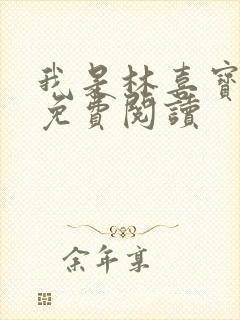 我是林喜寶
免費閱讀
余年享